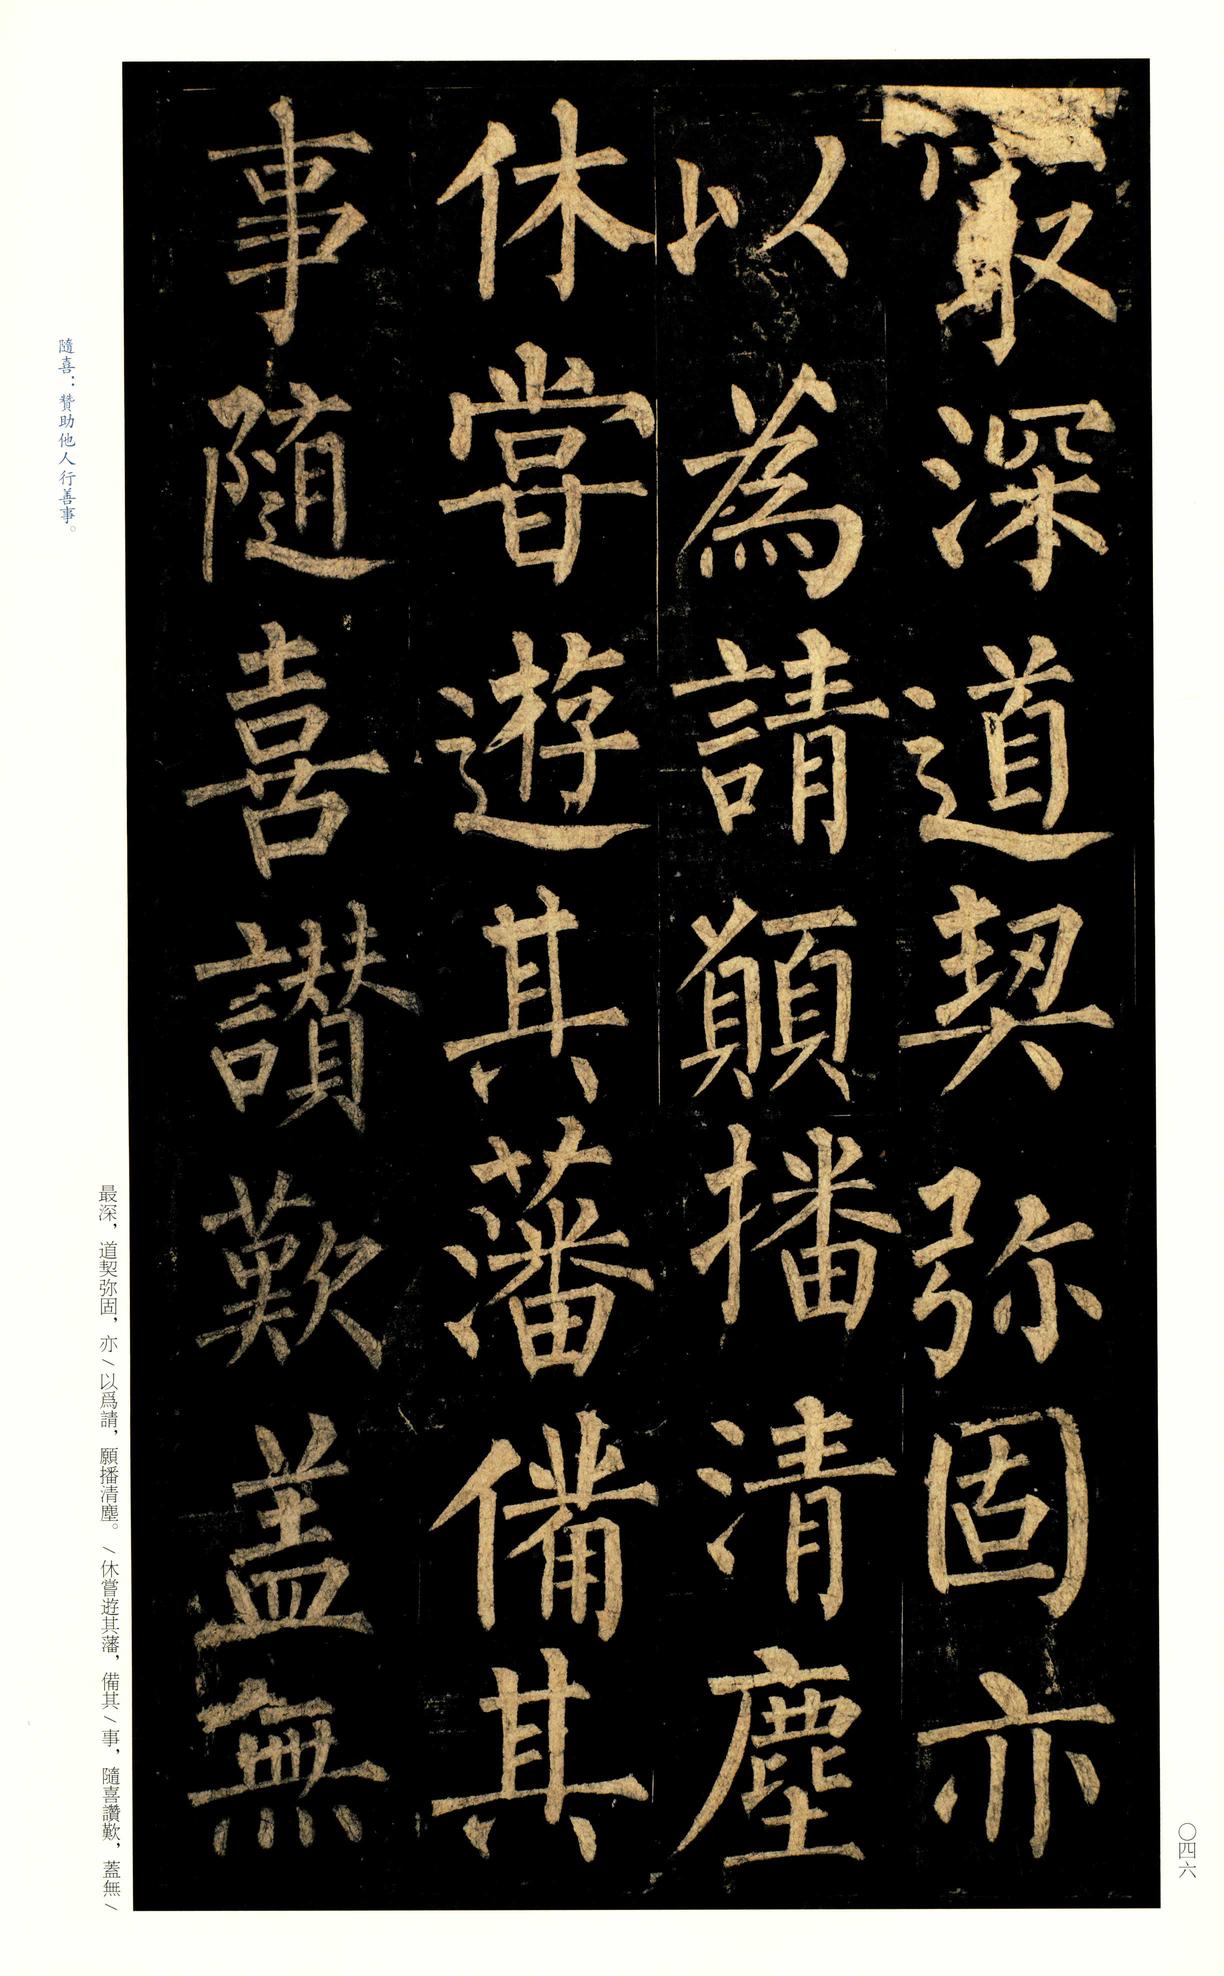 冣深道契弥固亦
以為請願播清塵
休甞遊其藩備其
事隨喜讃歎盖無
隨喜：贊助他人行善事。
最深，道契弥固，亦\以爲請，願播清塵。\休嘗遊其藩，備其\事，隨喜讚歎，蓋無\
〇四六